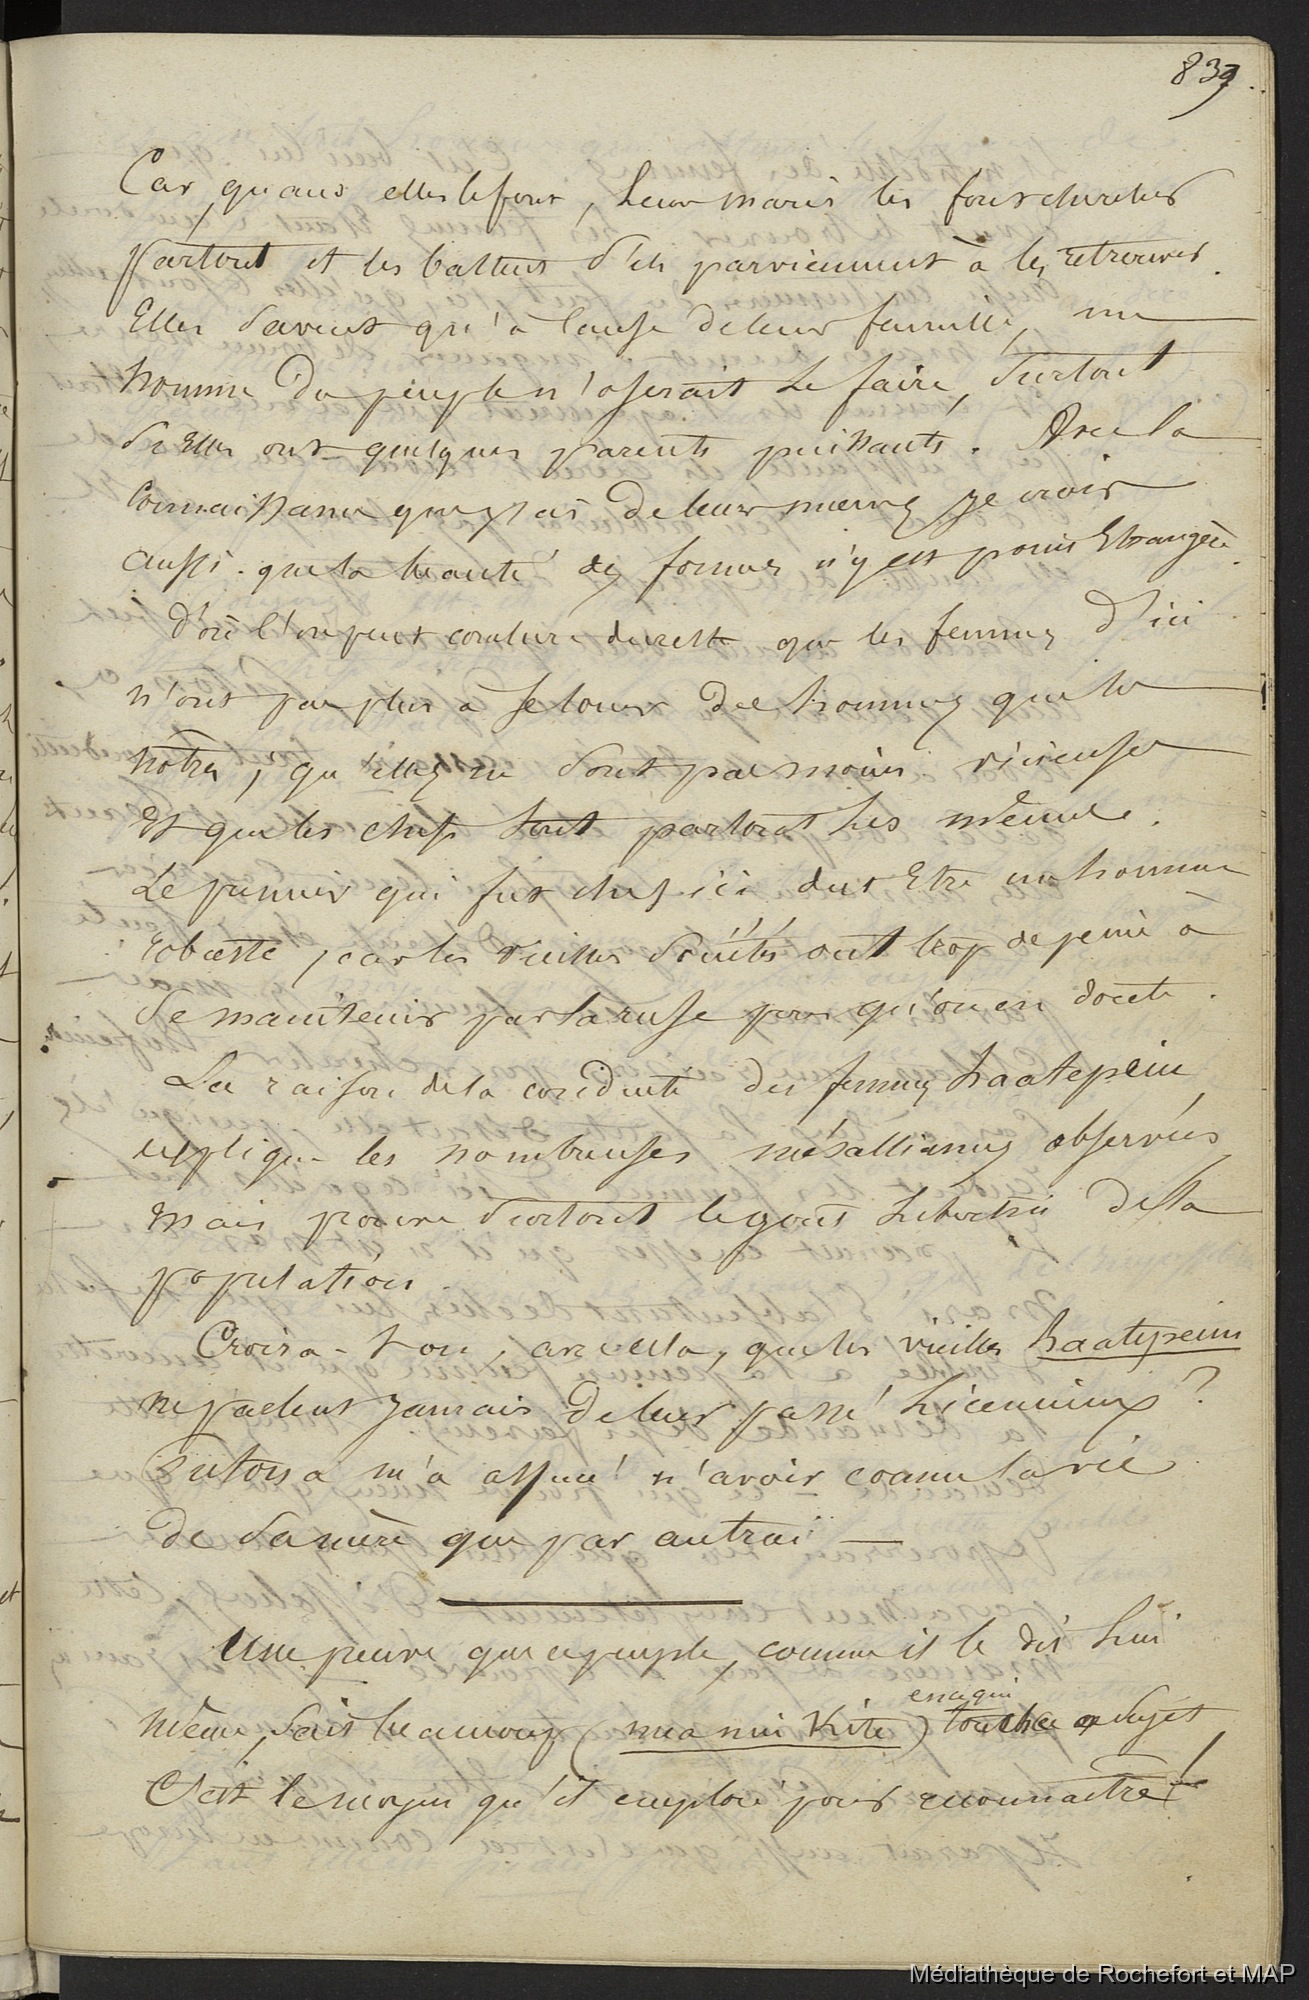 839.
Car, quand elles le font, leur maris les font chercher
partout et les battent s'ils parviennent à les retrouver.
Elles savent qu'à cause de leur famille, un
homme du peuple n'oserait le faire, surtout
si elles ont quelques parents puissants. Avec la
connaissance que j'ai de leur mœurs je crois
aussi que la beauté des formes n'y est point étrangère.
D'où l'on peut conclure du reste que les femmes d'ici
n'ont pas plus à se louer des hommes que les
nôtres, qu'elles ne sont pas moins vicieuses
et que les chefs sont partout les mêmes.
Le premier qui fut chef ici dut être un homme
robuste, car les vieilles ont trop de peine à
se maintenir par la ruse pour qu'on en doute.
La raison de la conduite des femmes haatepeiu,
explique les nombreuses mésalliances observées,
mais prouve surtout le goût libertin de la
population.
Croira-t-on, avec cela, que les vieilles haatepeiu
ne parlent jamais de leur passé licencieux?
m'a assuré n'avoir connu la vie
de sa mère que par autrui —
Une preuve que ce peuple, comme il le dit lui
même, sait beaucoup (mea nui kite)
en ce qui
touche ce sujet
C'est le moyen qu'il emploie pour reconnaître!
Médiathèque de Rochefort et MAP